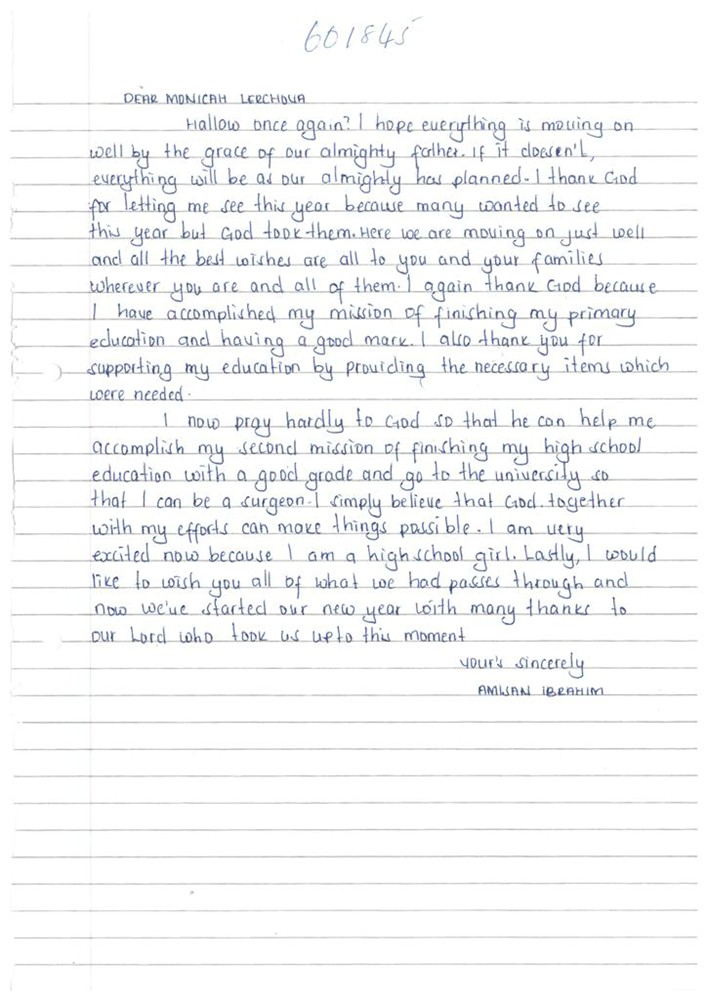 601845
DEAR MONICAH LERCHOVA
Hallow once again? I hope everything is moving on
well by the grace of our almighty father. If it doesen't,
everything will be as our almighty has planned. I thank God
for letting me see this year because many wanted to see
this year but God took them. Here we are moving on just well
and all the best wishes are all to you and your families
wherever you are and all of them. I again thank God because
I have accomplished my mission of finishing my primary
education and having a good mark. I also thank you for
supporting my education by providing the necessary items which
were needed.
I now pray hardly to God so that he can help me
accomplish my second mission of finishing my high school
education with a good grade and go to the university so
that I can be a surgeon. I simply believe that God. together
with my efforts can make things possible. I am very
excited now because I am a high school girl. Lastly, I would
like to wish you all of what we had passes through and
now we've started our new year with many thanks to
our Lord who took us upto this moment
Your's sincerely
IBRAHIM